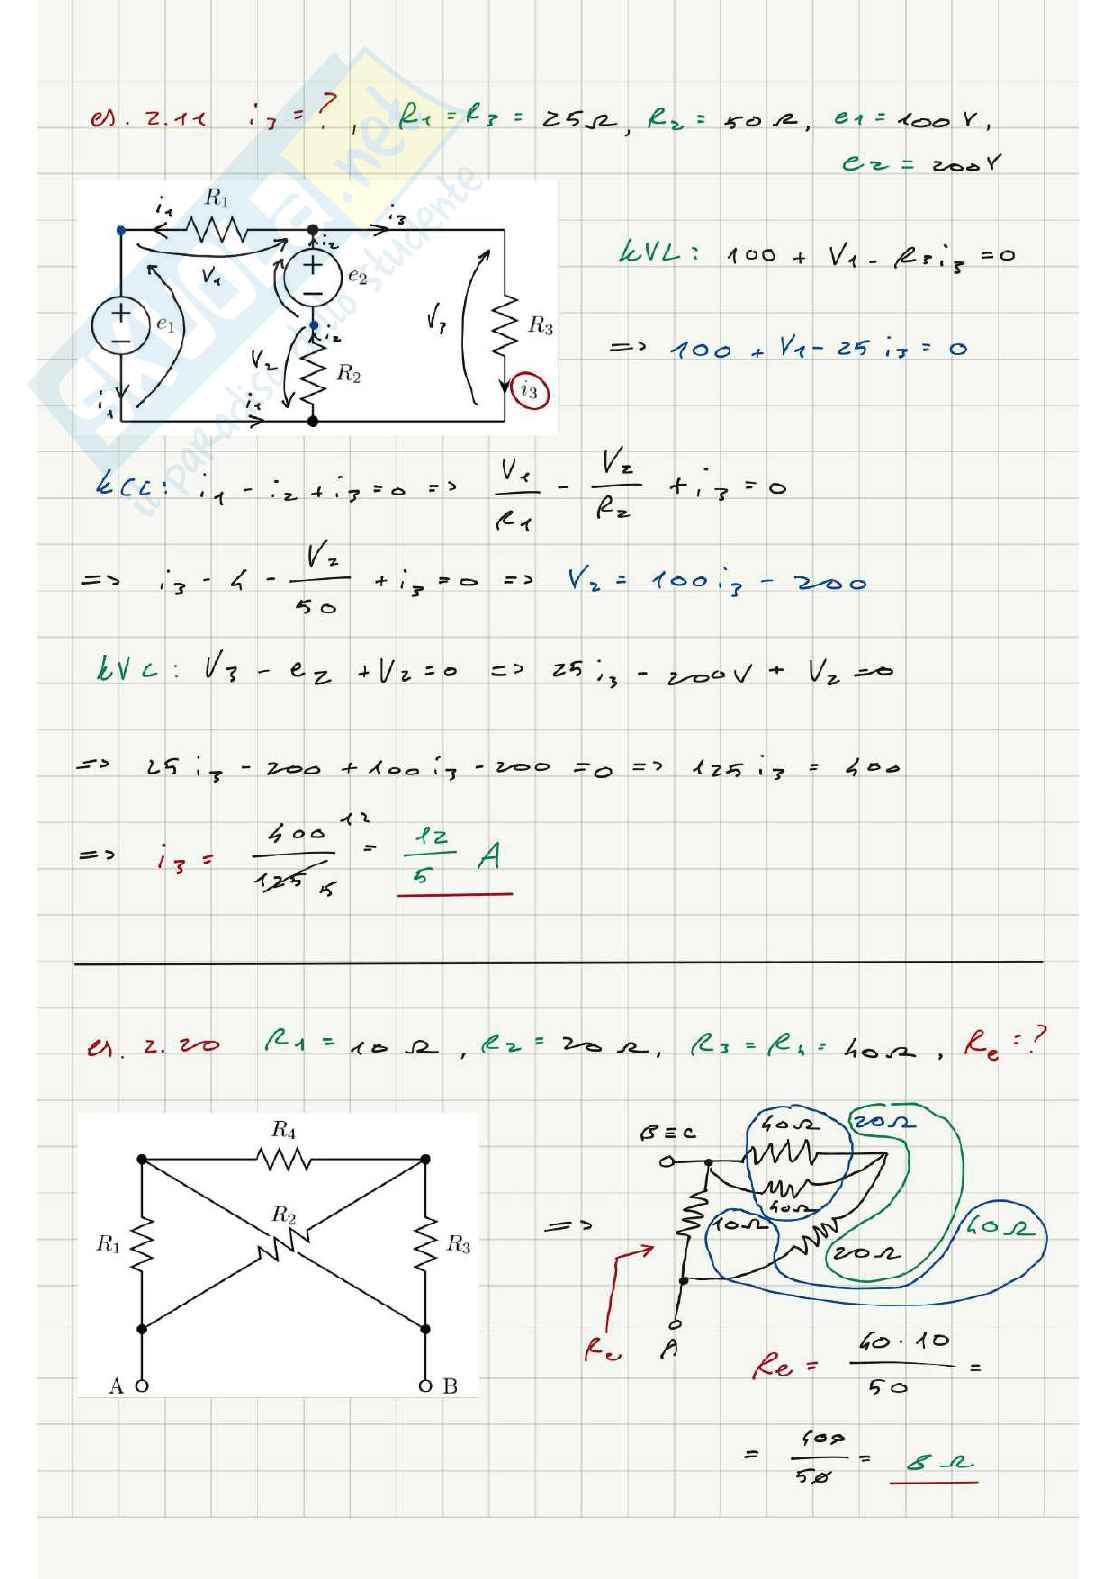 es. 2.11 i3 = ? , R1 = R3 = 25Ω, R2 = 50 Ω, e1 = 100 V,
e2 = 200V
i1 R1 i3
V1 i2 e2
e1 i2 V3 R3
V2 R2
i1 i1 i3
KVL: 100 + V1 - R3 i3 = 0
=> 100 + V1 - 25 i3 = 0
KCL: i1 - i2 + i3 = 0 => V1/R1 - V2/R2 + i3 = 0
=> i3 - 4 - V2/50 + i3 = 0 => V2 = 100 i3 - 200
KVL: V3 - e2 + V2 = 0 => 25 i3 - 200V + V2 = 0
=> 25 i3 - 200 + 100 i3 - 200 = 0 => 125 i3 = 400
=> i3 = 400/125 12 5 = 12/5 A
es. 2.20 R1 = 10 Ω, R2 = 20 Ω, R3 = R4 = 40Ω, Re = ?
R4
R2
R1 R3
A B
=>
B ≡ C 40Ω 20Ω
40Ω
10Ω 20Ω 40Ω
Re A
Re = 40 · 10/50 =
= 400/50 = 8 Ω
skuola.net
il paradiso dello studente